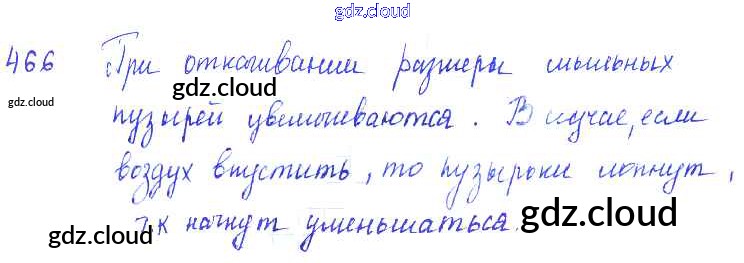 gdz.cloud
466 При откачивании размеры мыльных
gdz.cloud
gdz.cloud
пузырей увеличиваются. В случае, если
воздух впустить, то пузырьки лопнут,
т.к начнут уменьшаться.
gdz.cloud
gdz.cloud